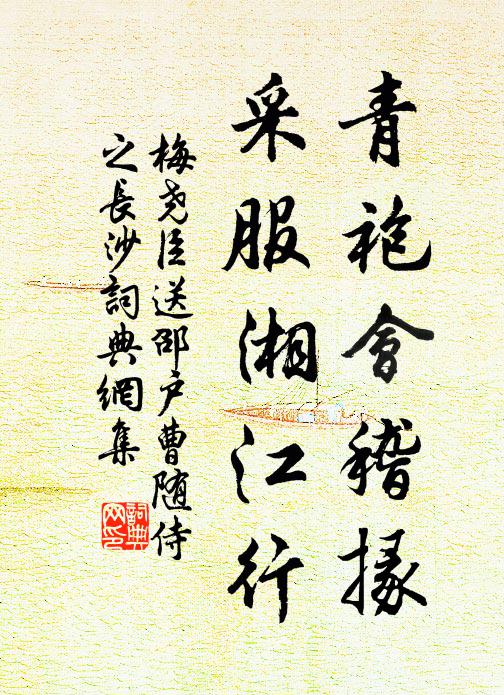 青袍會稽掾
采服湘江行
梅堯臣送邵户曹随侍
之長沙詞典網集
詞典
网印